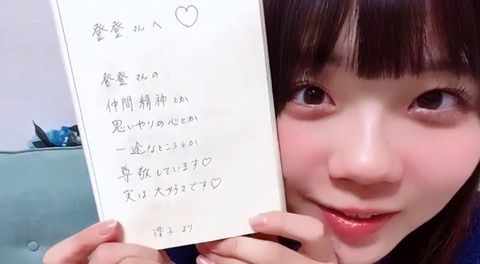 登登さんへ ♡
登登さんの
仲間精神とか
思いやりの心とか
一途なところとか
尊敬しています♡
実は大好きです♡
理子より